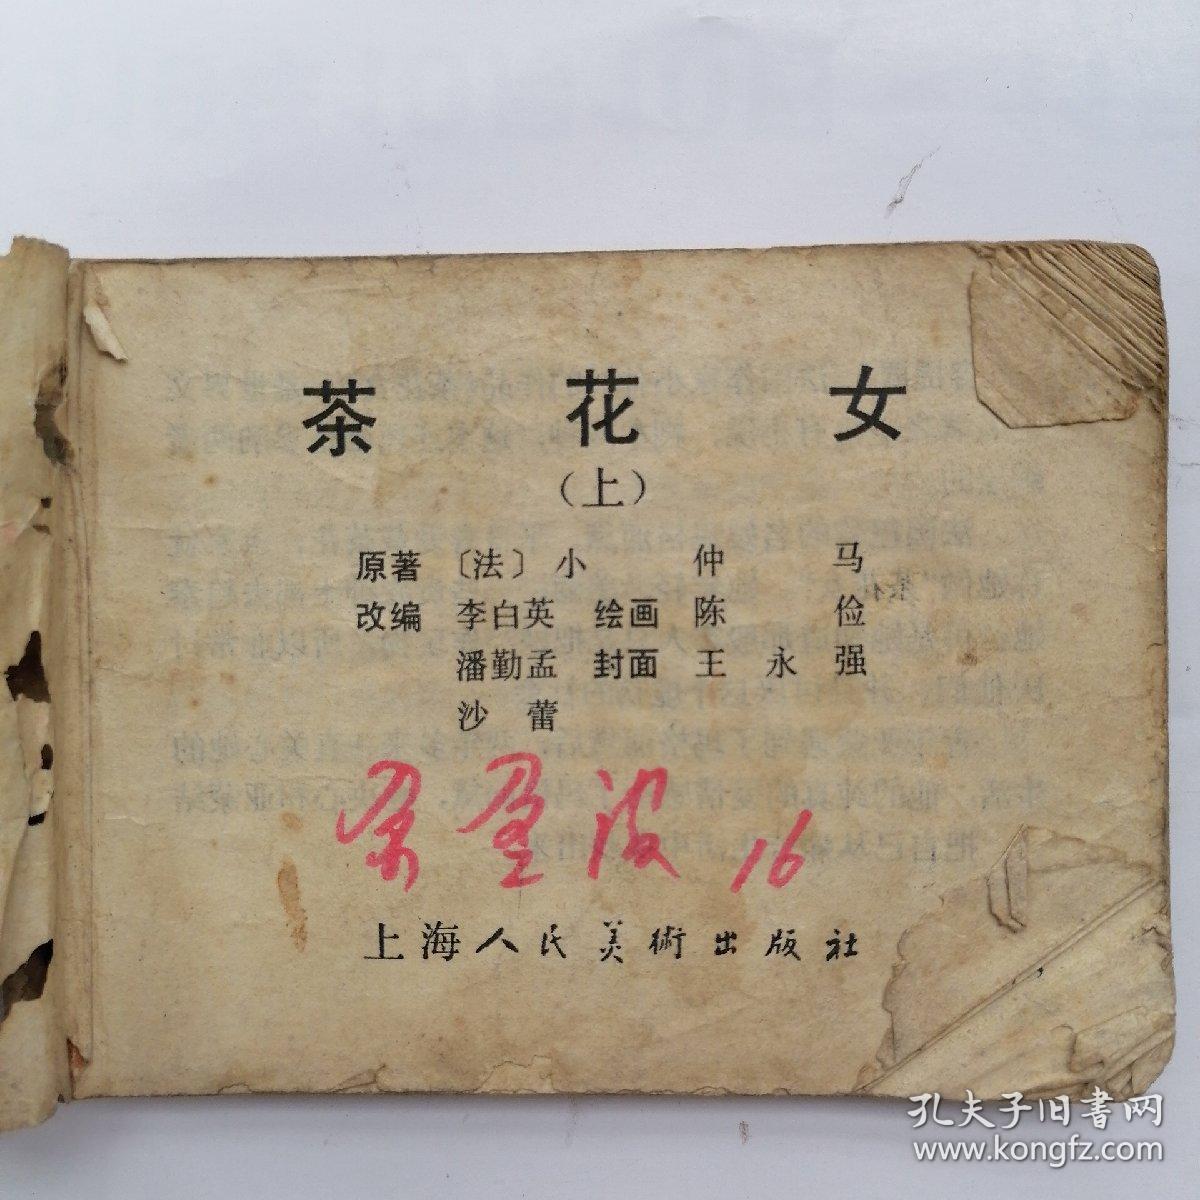 茶花女
（上）
原著 〔法〕小仲马
改编 李白英 绘画 陈俭
潘勤孟 封面 王永强
沙蕾
16
上海人民美術出版社
孔夫子旧书网
www.kongfz.com